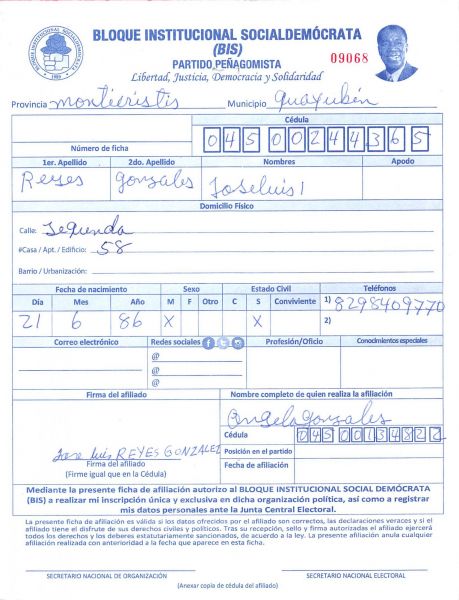 BLOQUE INSTITUCIONAL SOCIALDEMÓCRATA
(BIS)
PARTIDO PEÑAGOMISTA
Libertad, Justicia, Democracia y Solidaridad
09068
Provincia montecristis Municipio Guayubín
Cédula
Número de ficha 045 0024436 5
1er. Apellido 2do. Apellido Nombres Apodo
Reyes gonzales Joseluis
Domicilio Físico
Calle: segunda
#Casa / Apt. / Edificio: 58
Barrio / Urbanización:
Fecha de nacimiento Sexo Estado Civil Teléfonos
Día Mes Año M F Otro C S Conviviente 1) 8298409770
21 6 86 X X 2)
Correo electrónico Redes sociales Profesión/Oficio Conocimientos especiales
@
@
@
Firma del afiliado Nombre completo de quien realiza la afiliación
Angela gonzales
Cédula 045 0013482
Jose Luis REYES GONZALEZ Posición en el partido
Firma del afiliado Fecha de afiliación
(Firme igual que en la Cédula)
Mediante la presente ficha de afiliación autorizo al BLOQUE INSTITUCIONAL SOCIAL DEMÓCRATA
(BIS) a realizar mi inscripción única y exclusiva en dicha organización política, así como a registrar
mis datos personales ante la Junta Central Electoral.
La presente ficha de afiliación es válida si los datos ofrecidos por el afiliado son correctos, las declaraciones veraces y si el
afiliado tiene el disfrute de sus derechos civiles y políticos. Tras su recepción, sello y firma autorizadas el afiliado ejercerá
todos los derechos y los deberes estatutariamente sancionados, de acuerdo a la ley. La presente afiliación anula cualquier
afiliación realizada con anterioridad a la fecha que aparece en esta ficha.
SECRETARIO NACIONAL DE ORGANIZACIÓN SECRETARIO NACIONAL ELECTORAL
(Anexar copia de cédula del afiliado)